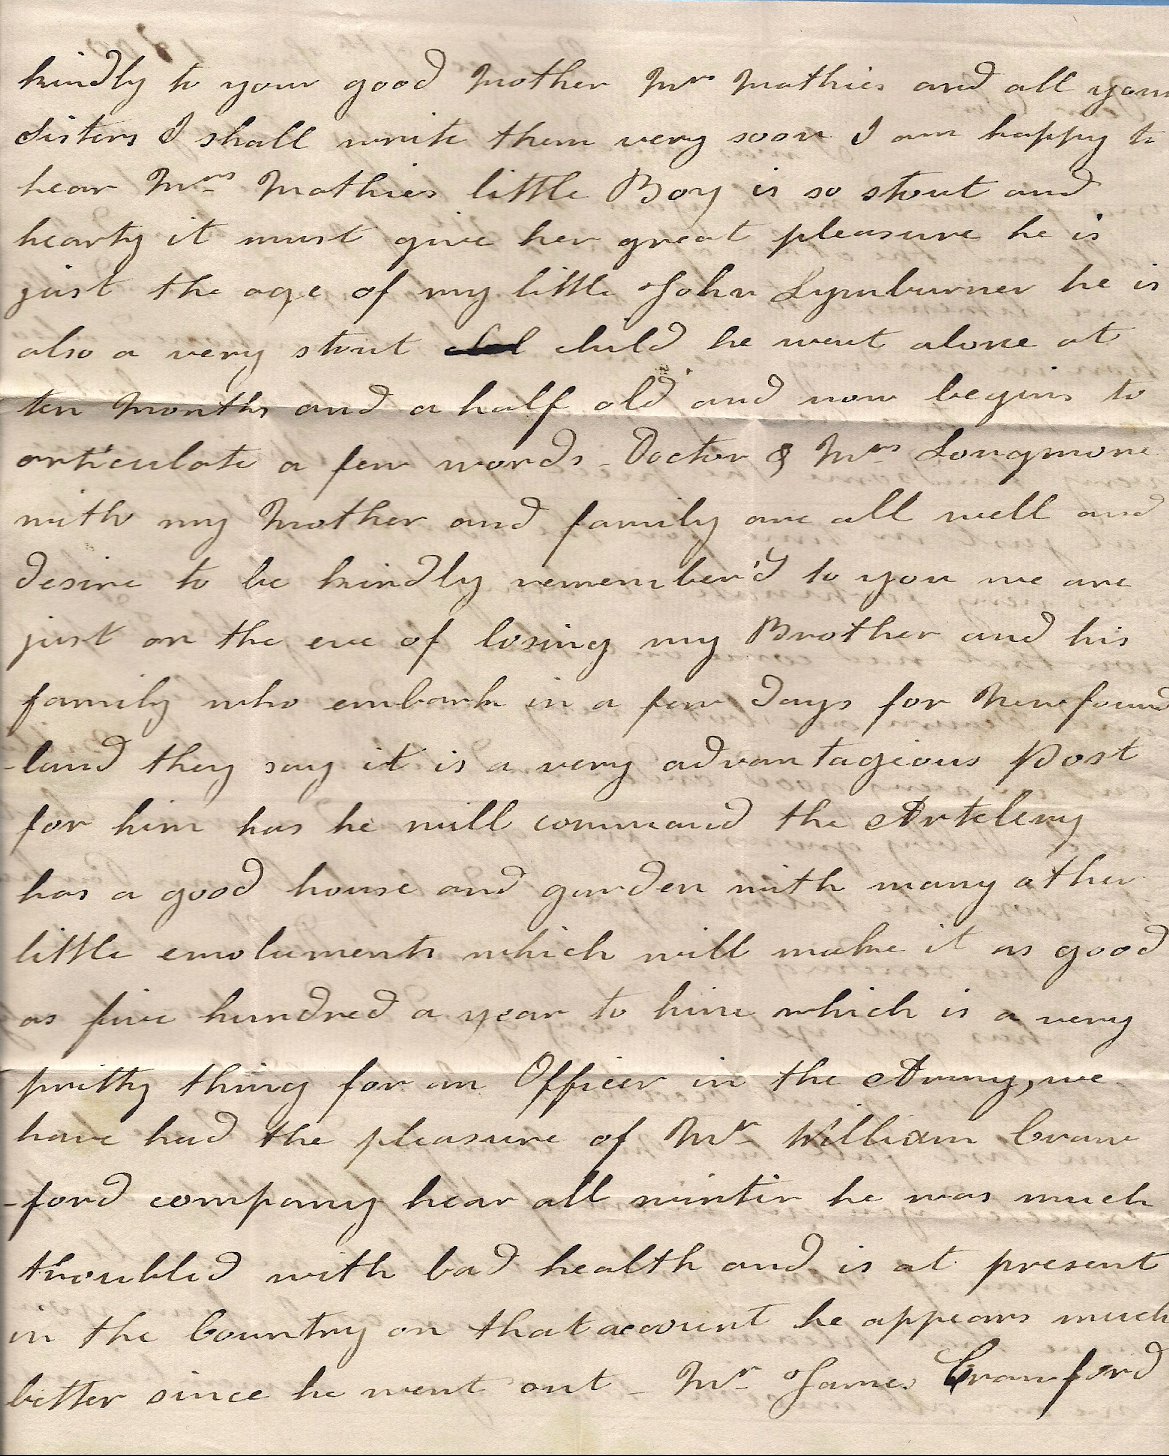 kindly to your good Mother Mrs Mathies and all your
Sisters I shall write them very soon I am happy to
hear Mrs Mathies little Boy is so stout and
hearty it must give her great pleasure he is
just the age of my little John Lymburner he is
also a very stout child he went alone at
ten Months and a half old and now begins to
articulate a few words - Doctor & Mrs Longmore
with my Mother and family are all well and
desire to be kindly remember'd to you we are
just on the eve of losing my Brother and his
family who embark in a few days for Newfound
-land they say it is a very advantagious Post
for him has he will command the Artelery
has a good house and garden with many other
little emoluments which will make it as good
as five hundred a year to him which is a very
pritty thing for an Officer in the Army, we
have had the pleasure of Mr William Craw
-ford company hear all winter he was much
troubled with bad health and is at present
in the Country on that account he appears much
better since he went out - Mr James Crawford